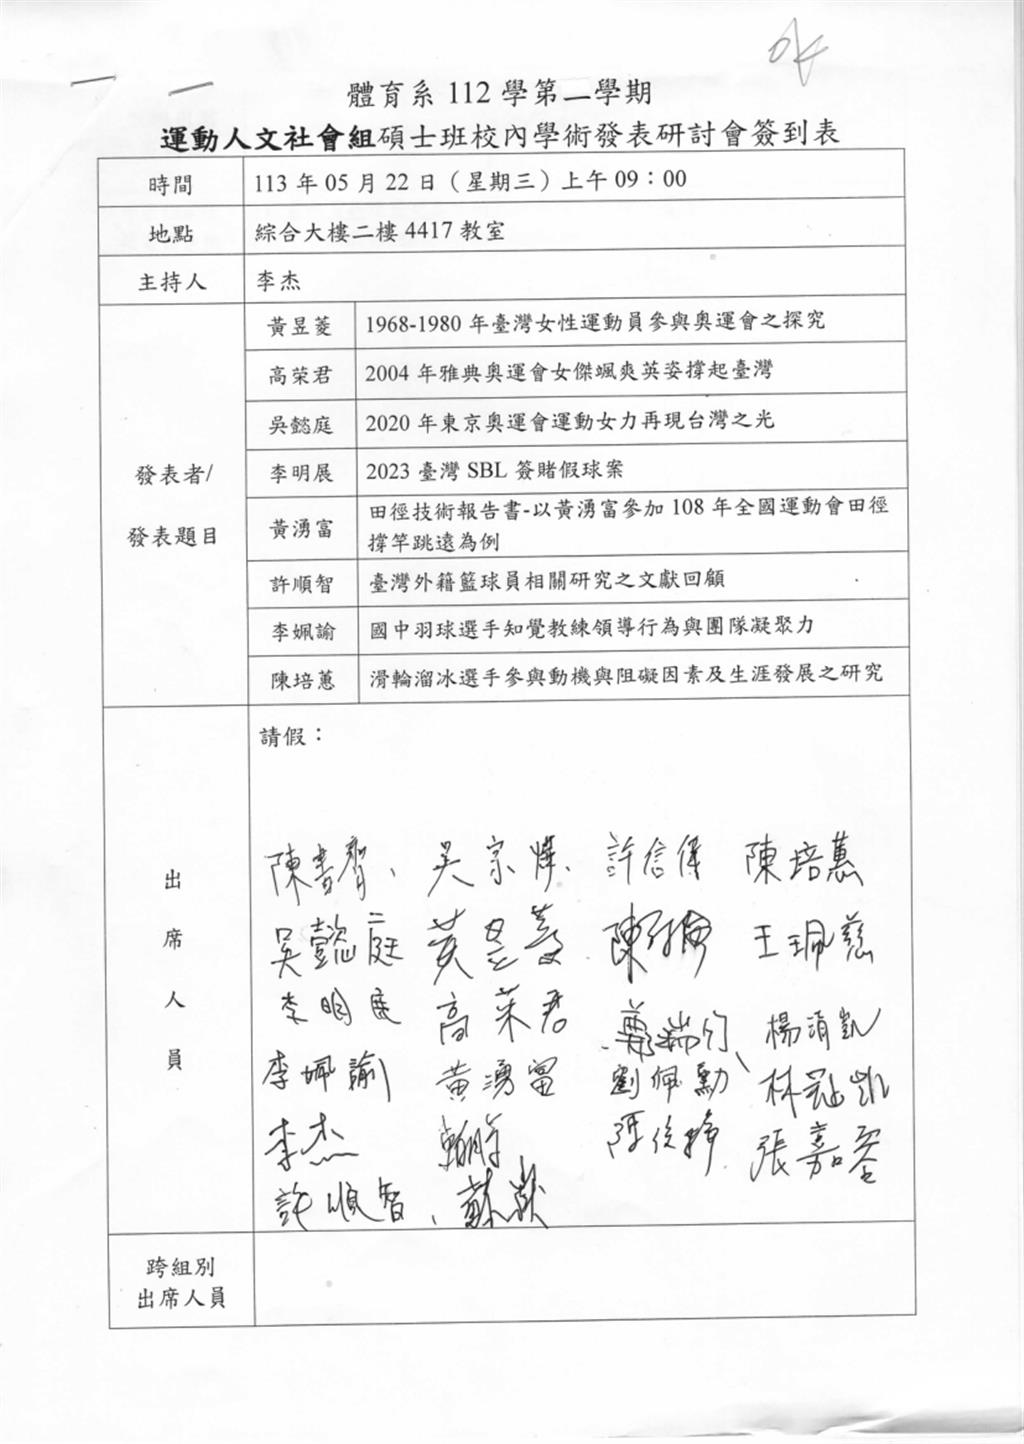 體育系 112 學第二學期
運動人文社會組碩士班校內學術發表研討會簽到表
時間 113 年 05 月 22 日（星期三）上午 09：00
地點 綜合大樓二樓 4417 教室
主持人 李杰
發表者/
發表題目
黃昱菱 1968-1980 年臺灣女性運動員參與奧運會之探究
高荣君 2004 年雅典奧運會女傑颯爽英姿撐起臺灣
吳懿庭 2020 年東京奧運會運動女力再現台灣之光
李明展 2023 臺灣 SBL 簽賭假球案
黃湧富 田徑技術報告書-以黃湧富參加 108 年全國運動會田徑
撐竿跳遠為例
許順智 臺灣外籍籃球員相關研究之文獻回顧
李姵諭 國中羽球選手知覺教練領導行為與團隊凝聚力
陳培蕙 滑輪溜冰選手參與動機與阻礙因素及生涯發展之研究
出席人員
請假：
陳書齊、 吳宗燁、 許信偉 陳培蕙
吳懿庭 黃昱菱 王珮慈
李明展 高荣君 楊清凱
李姵諭 黃湧富 劉佩勳 林冠凱
李杰 張嘉容
許順智、
跨組別
出席人員